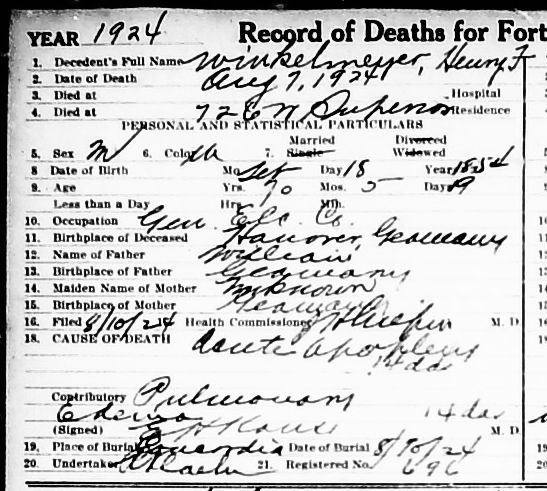 YEAR 1924 Record of Deaths for Fort
1. Decedent's Full Name Winkelmeyer, Henry F
2. Date of Death Aug 7, 1924
3. Died at Hospital
4. Died at 726 W Superior Residence
PERSONAL AND STATISTICAL PARTICULARS
Married Divorced
5. Sex M 6. Color W 7. Single Widowed
8 Date of Birth Mo. Set Day 18 Year 1854
9. Age Yrs. 70 Mos. 5 Days 19
Less than a Day Hrs. Min.
10. Occupation Gen. Elc. Co.
11. Birthplace of Deceased Hanover, Germany
12. Name of Father William
13. Birthplace of Father Germany
14. Maiden Name of Mother Unknown
15. Birthplace of Mother Germany
16. Filed 8/10/24 Health Commissioner M. D.
18. CAUSE OF DEATH Acute apoplexy
14 das
Contributory Pulmonary
Edema 14 das
(Signed) M. D.
19. Place of Burial Concordia Date of Burial 8/10/24
20. Undertaker 21. Registered No. 696